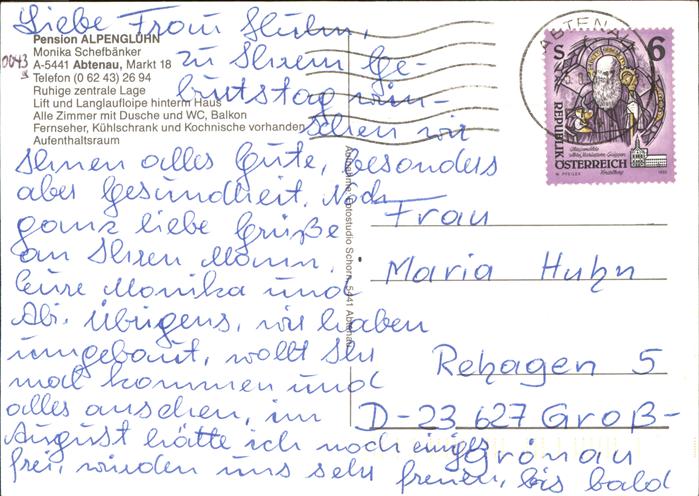 Liebe Frau Huhn,
zu Ihrem Ge-
burtstag wün-
schen wir
Ihnen alles Gute, besonders
aber Gesundheit. Noch
ganz liebe Grüße
an Ihren Mann.
Eure Monika und
Abi. Übrigens, wir haben
umgebaut, wollt Ihr
mal kommen und
alles ansehen, im
August hätte ich noch einiges
frei, würden uns sehr freuen, bis bald
Pension ALPENGLÜHN
Monika Schefbänker
A-5441 Abtenau, Markt 18
Telefon (0 62 43) 26 94
Ruhige zentrale Lage
Lift und Langlaufloipe hinterm Haus
Alle Zimmer mit Dusche und WC, Balkon
Fernseher, Kühlschrank und Kochnische vorhanden
Aufenthaltsraum
0043
Aufnahme Fotostudio Schorn, 5441 Abtenau
ABTENAU
S 6
REPUBLIK
ÖSTERREICH
1993
Frau
Maria Huhn
Rehagen 5
D-23 627 Groß-
Grönau